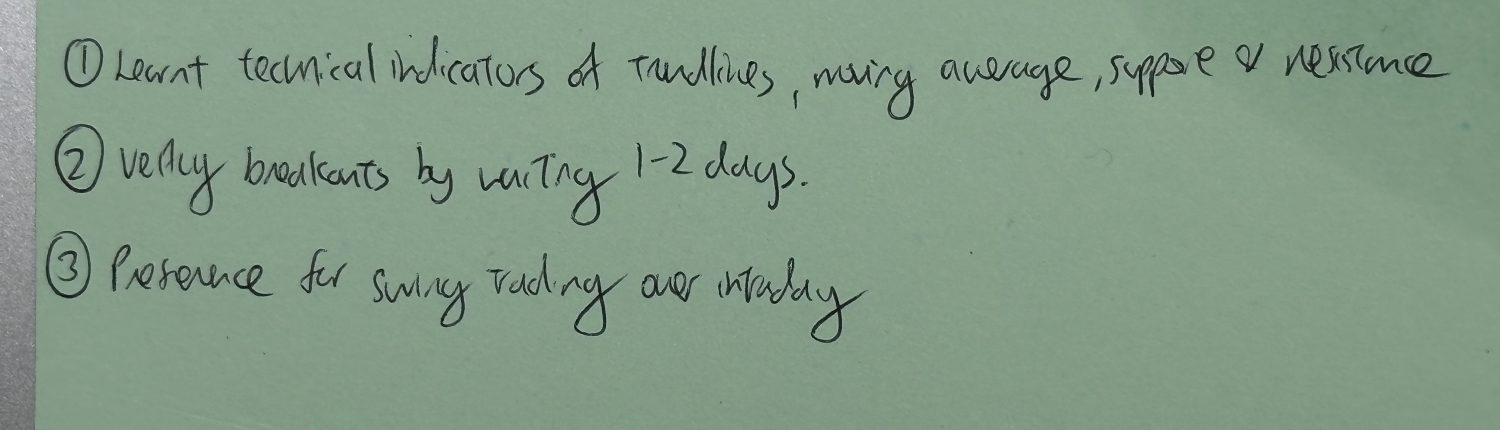 ① Learnt technical indicators of trendlines, moving average, support & resistance
② Verify breakouts by waiting 1-2 days.
③ Preference for swing trading over intraday